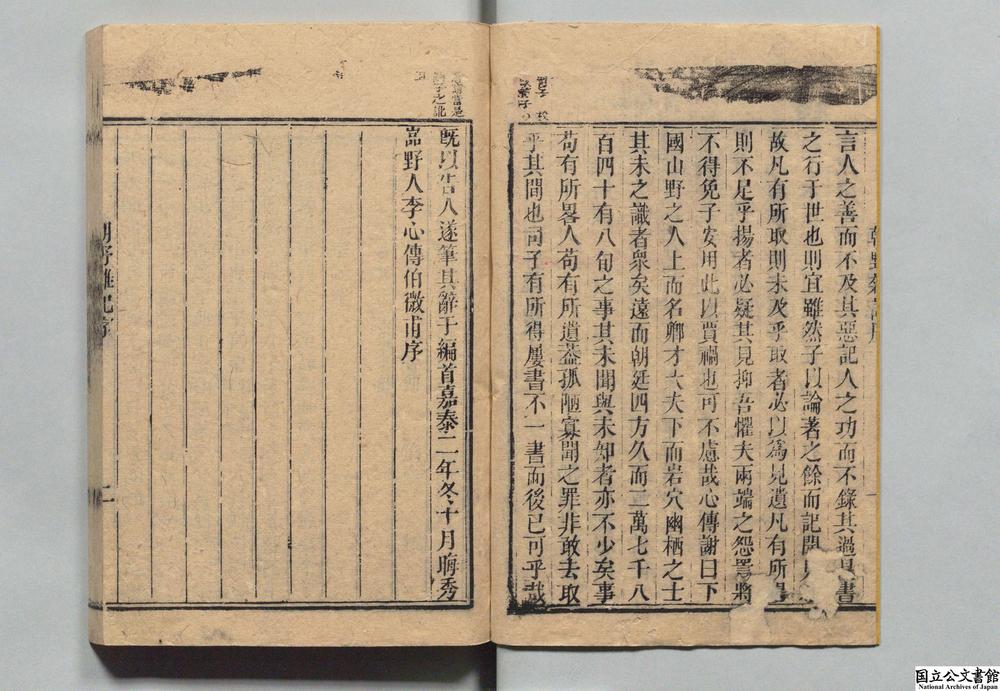 言人之善而不及其惡記人之功而不錄其過是書
之行于世也則宜雖然子以論著之餘而記聞見
故凡有所取則未及乎取者必以為見遺凡有所
則不足乎揚者必疑其見抑吾懼夫兩端之怨詈將
不得免子安用此以賈禍也可不慮哉心傳謝曰下
國山野之人上而名卿才大夫下而岩穴幽栖之士
其未之識者衆矣遠而朝廷四方久而二萬七千八
百四十有八旬之事其未聞與未知者亦不少矣事
苟有所畧人苟有所遺葢孤陋寡聞之罪非敢去取
乎其間也司子有所得屢書不一書而後已可乎哉
既以告人遂筆其辭于編首嘉泰二年冬十月晦秀
嵓野人李心傳伯微甫序
朝野雜記序
二
国立公文書館
National Archives of Japan